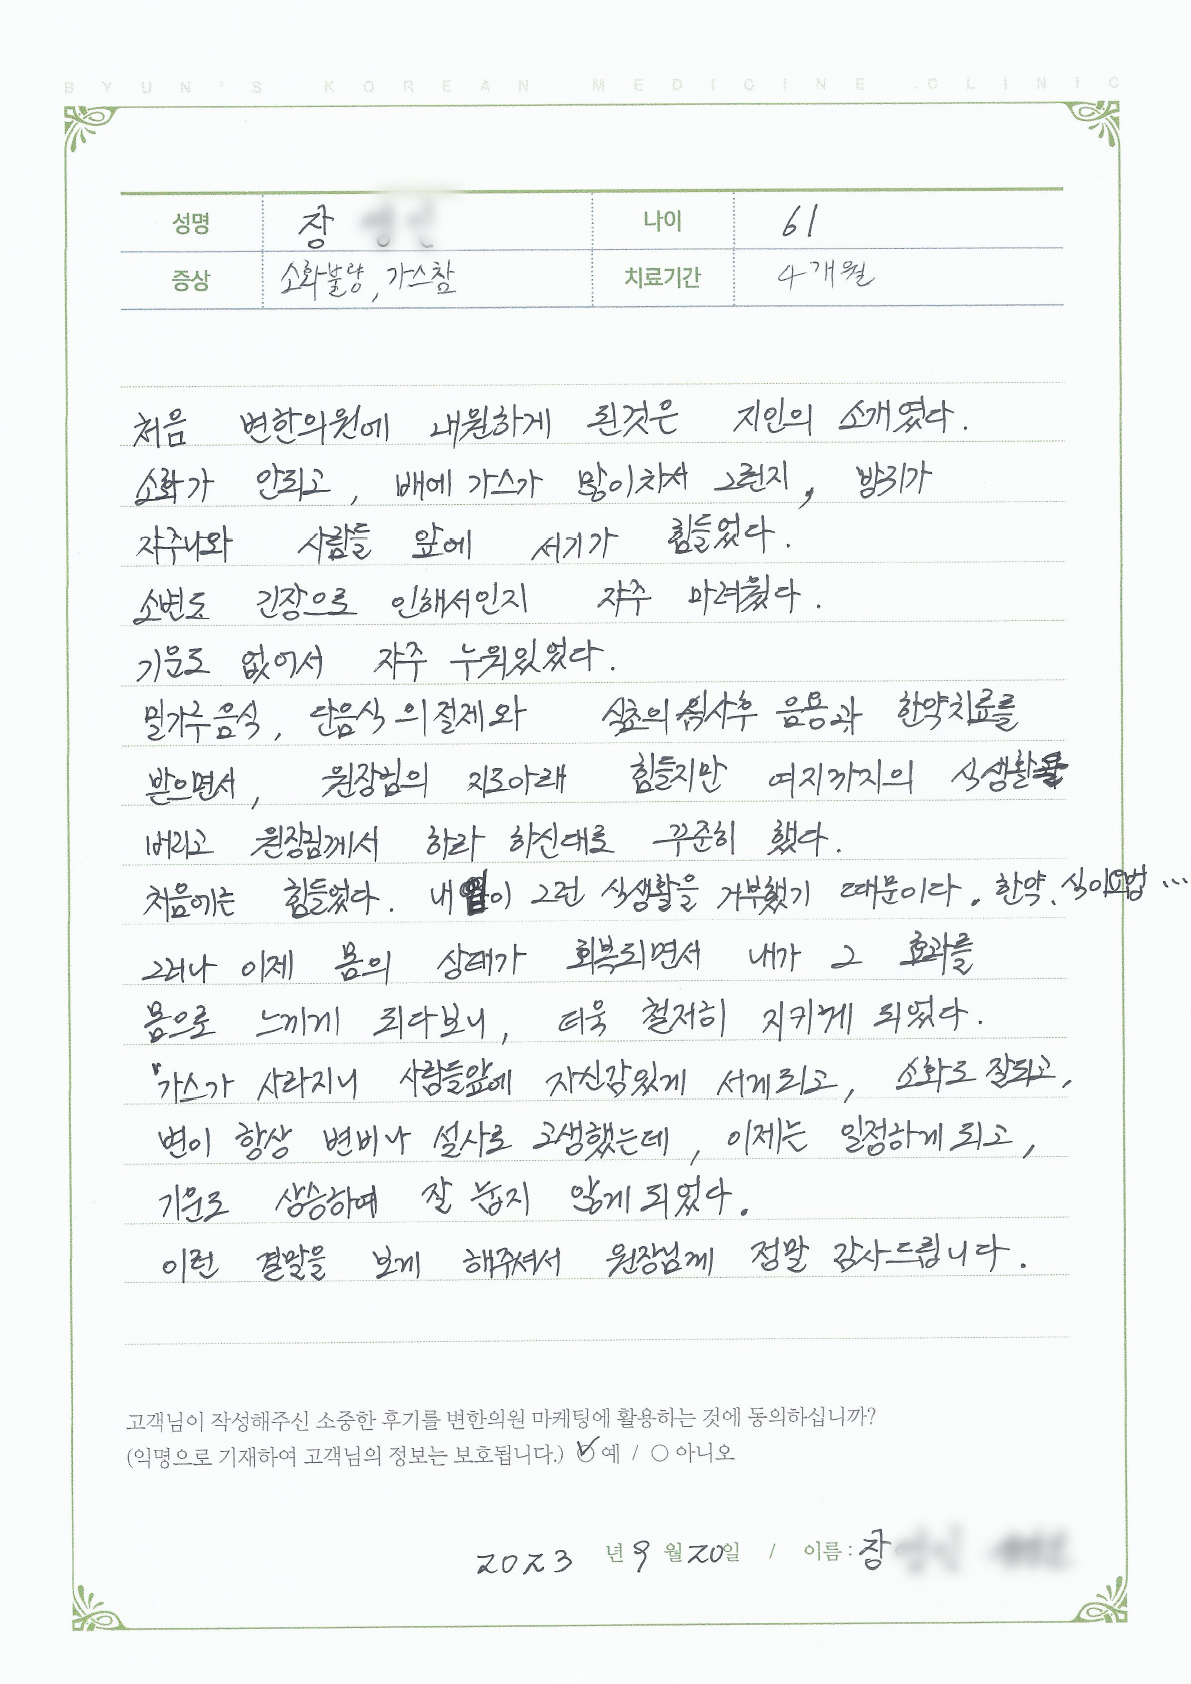 BYUN'S KOREAN MEDICINE CLINIC
성명 장 나이 61
증상 소화불량, 가스참 치료기간 4개월
처음 변한의원에 내원하게 된것은 지인의 소개였다.
소화가 안되고, 배에 가스가 많이차서 그런지, 방귀가
자주나와 사람들 앞에 서기가 힘들었다.
소변도 긴장으로 인해서인지 자주 마려웠다.
기운도 없어서 자주 누워있었다.
밀가루음식, 단음식의 절제와 식초의 식사후 음용과 한약치료를
받으면서, 원장님의 지도아래 힘들지만 여지까지의 식생활을
버리고 원장님께서 하라 하신대로 꾸준히 했다.
처음에는 힘들었다. 내 이 그런 식생활을 거부했기 때문이다. 한약, 식이요법...
그러나 이제 몸의 상태가 회복되면서 내가 그 효과를
몸으로 느끼게 되다보니, 더욱 철저히 지키게 되었다.
"가스가 사라지니 사람들앞에 자신감있게 서게되고, 소화도 잘되고,
변이 항상 변비나 설사로 고생했는데, 이제는 일정하게 되고,
기운도 상승하여 잘 눕지 않게 되었다.
이런 결말을 보게 해주셔서 원장님께 정말 감사드립니다.
고객님이 작성해주신 소중한 후기를 변한의원 마케팅에 활용하는 것에 동의하십니까?
(익명으로 기재하여 고객님의 정보는 보호됩니다.) 예 / 아니오
2023 년 9 월 20일 / 이름 : 장